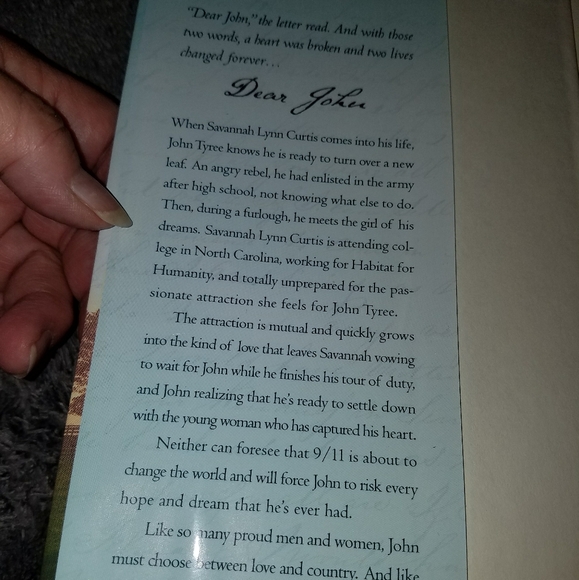 “Dear John,” the letter read. And with those
two words, a heart was broken and two lives
changed forever…
Dear John
When Savannah Lynn Curtis comes into his life,
John Tyree knows he is ready to turn over a new
leaf. An angry rebel, he had enlisted in the army
after high school, not knowing what else to do.
Then, during a furlough, he meets the girl of his
dreams. Savannah Lynn Curtis is attending col-
lege in North Carolina, working for Habitat for
Humanity, and totally unprepared for the pas-
sionate attraction she feels for John Tyree.
The attraction is mutual and quickly grows
into the kind of love that leaves Savannah vowing
to wait for John while he finishes his tour of duty,
and John realizing that he's ready to settle down
with the young woman who has captured his heart.
Neither can foresee that 9/11 is about to
change the world and will force John to risk every
hope and dream that he's ever had.
Like so many proud men and women, John
must choose between love and country. And like